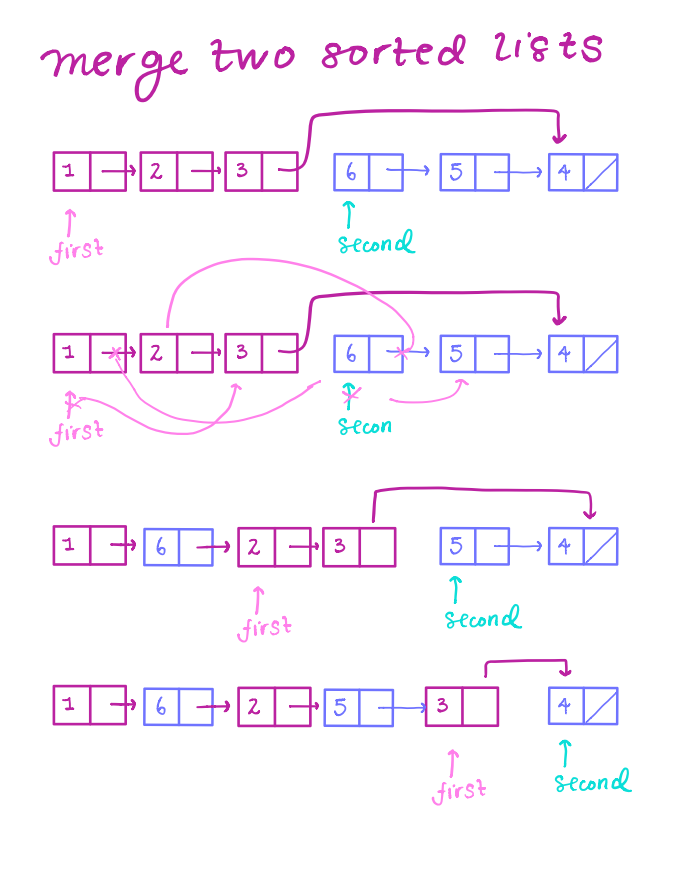 merge two sorted lists
1 2 3 6 5 4
first second
1 2 3 6 5 4
first secon
1 6 2 3 5 4
first second
1 6 2 5 3 4
first second